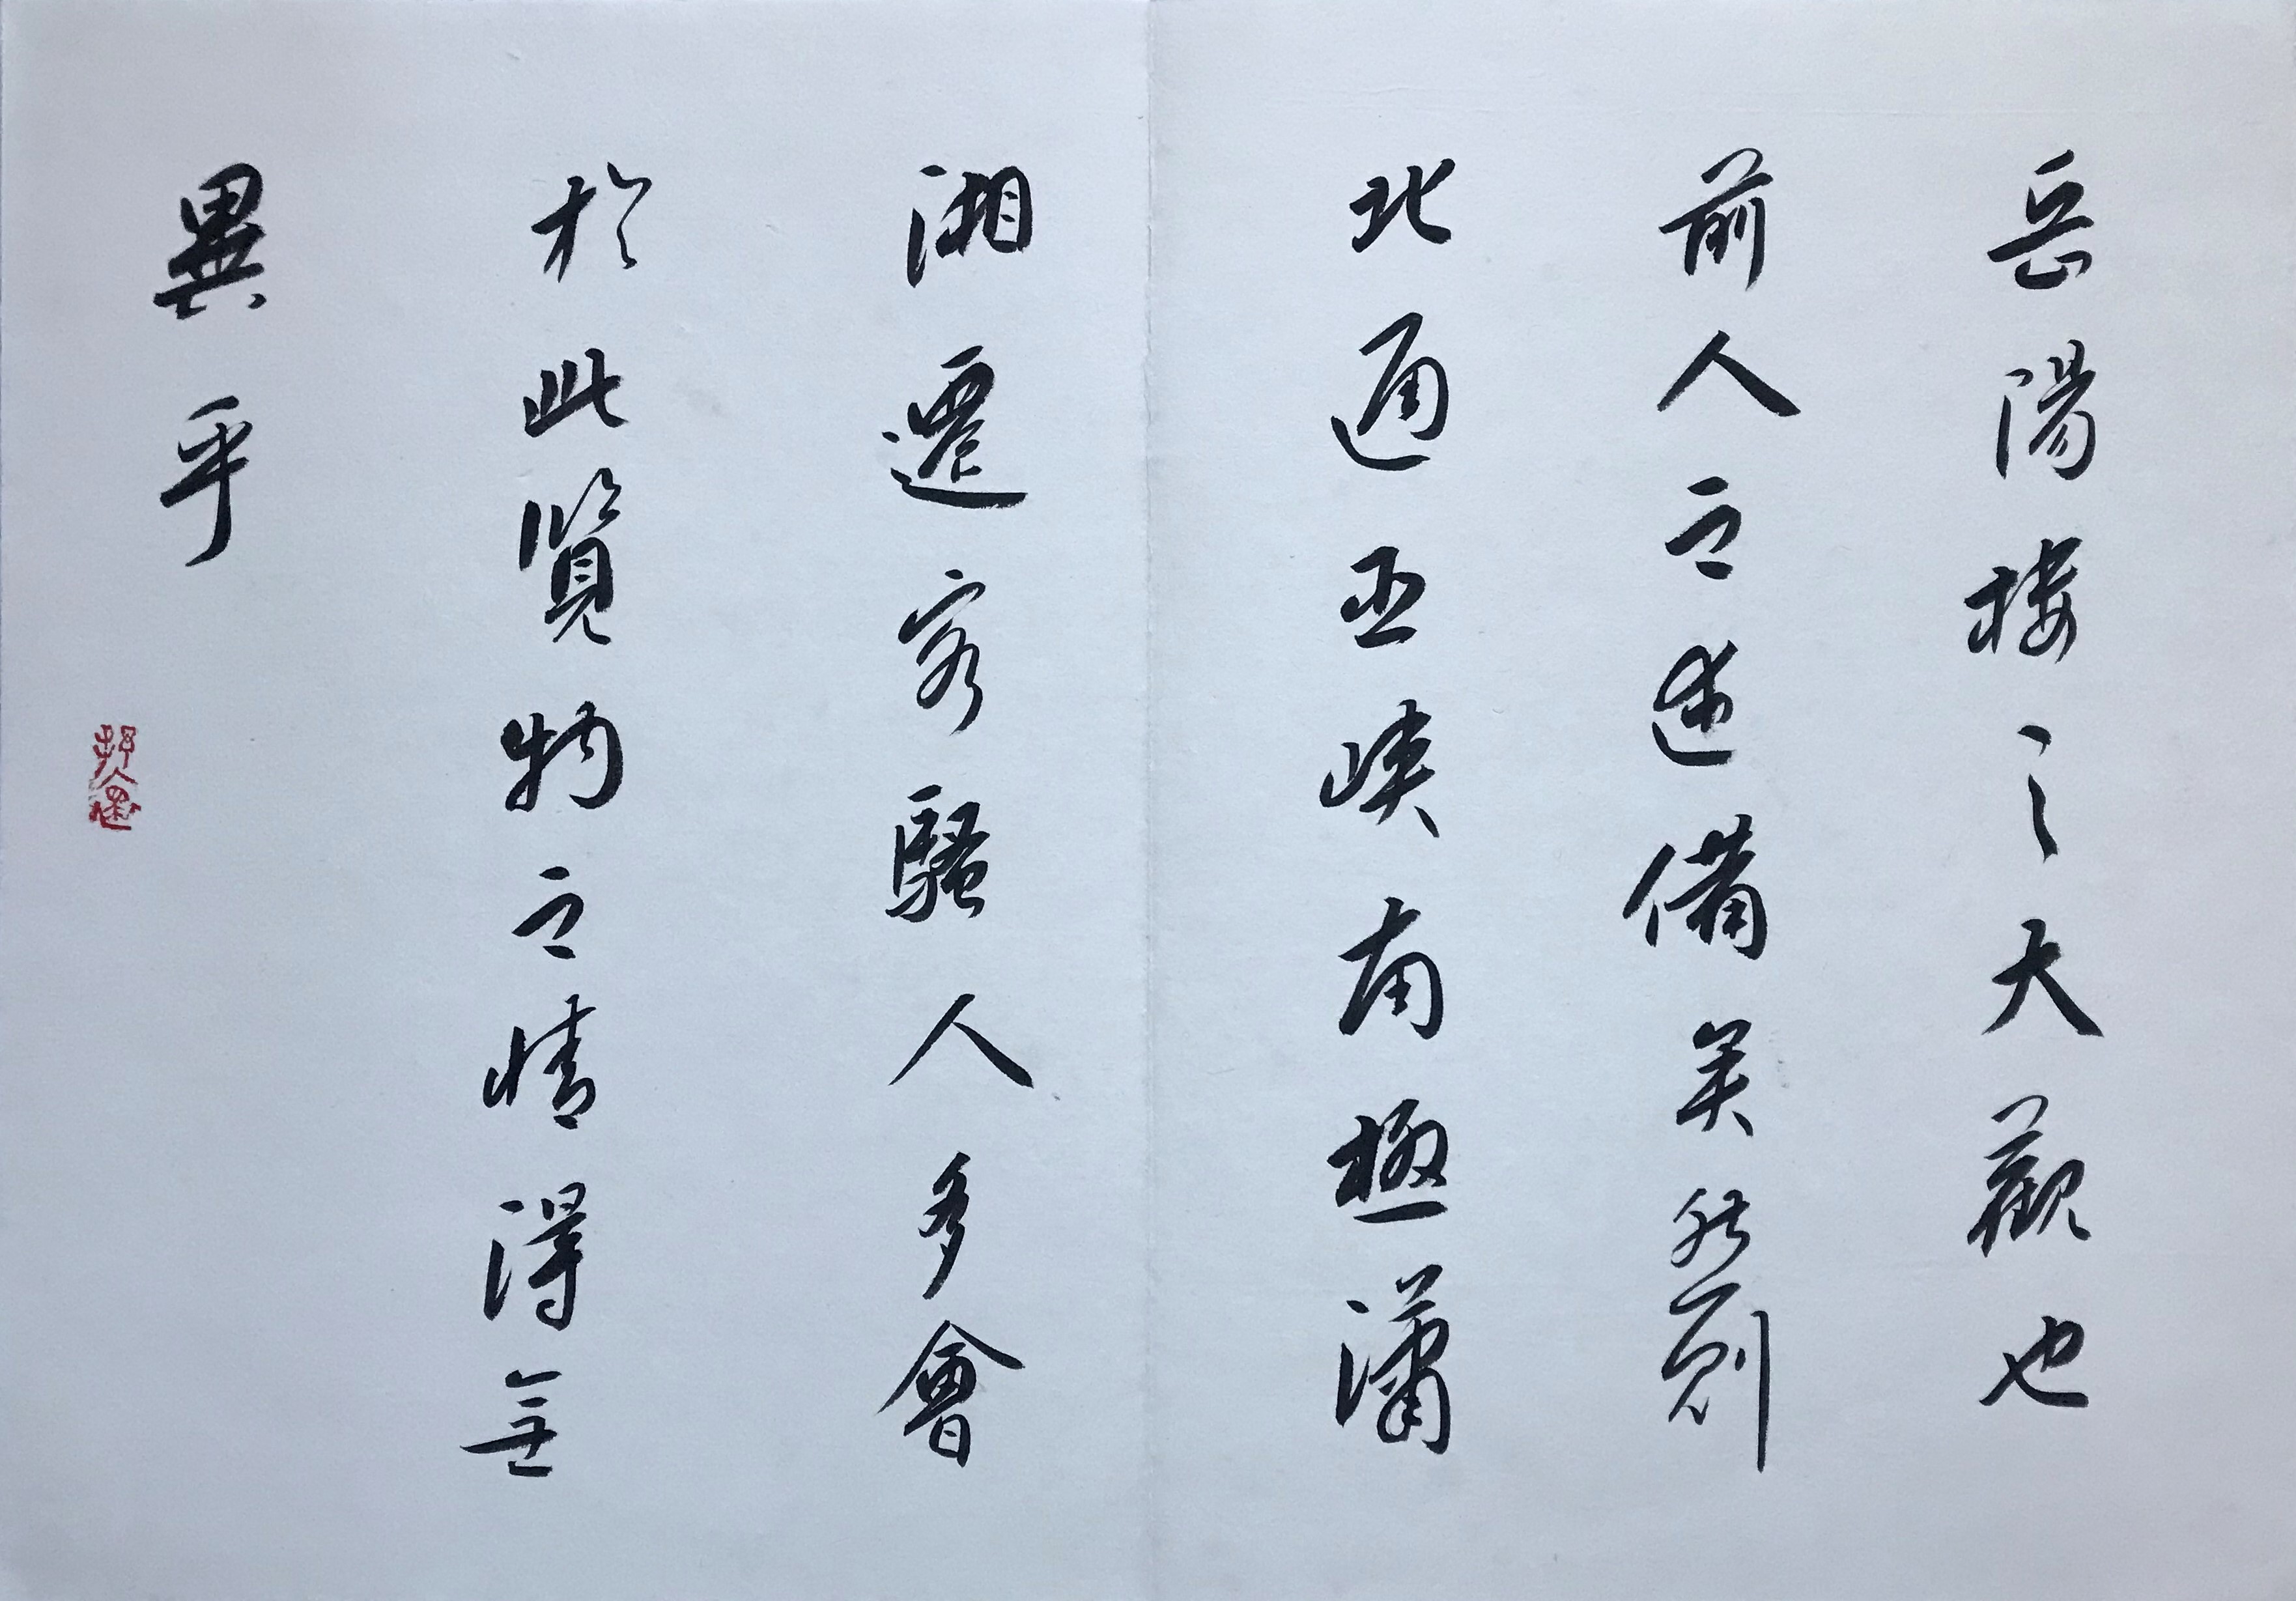 岳陽樓之大觀也
前人之述備矣然則
北通巫峽南極瀟
湘遷客騷人多會
於此覽物之情得無
異乎